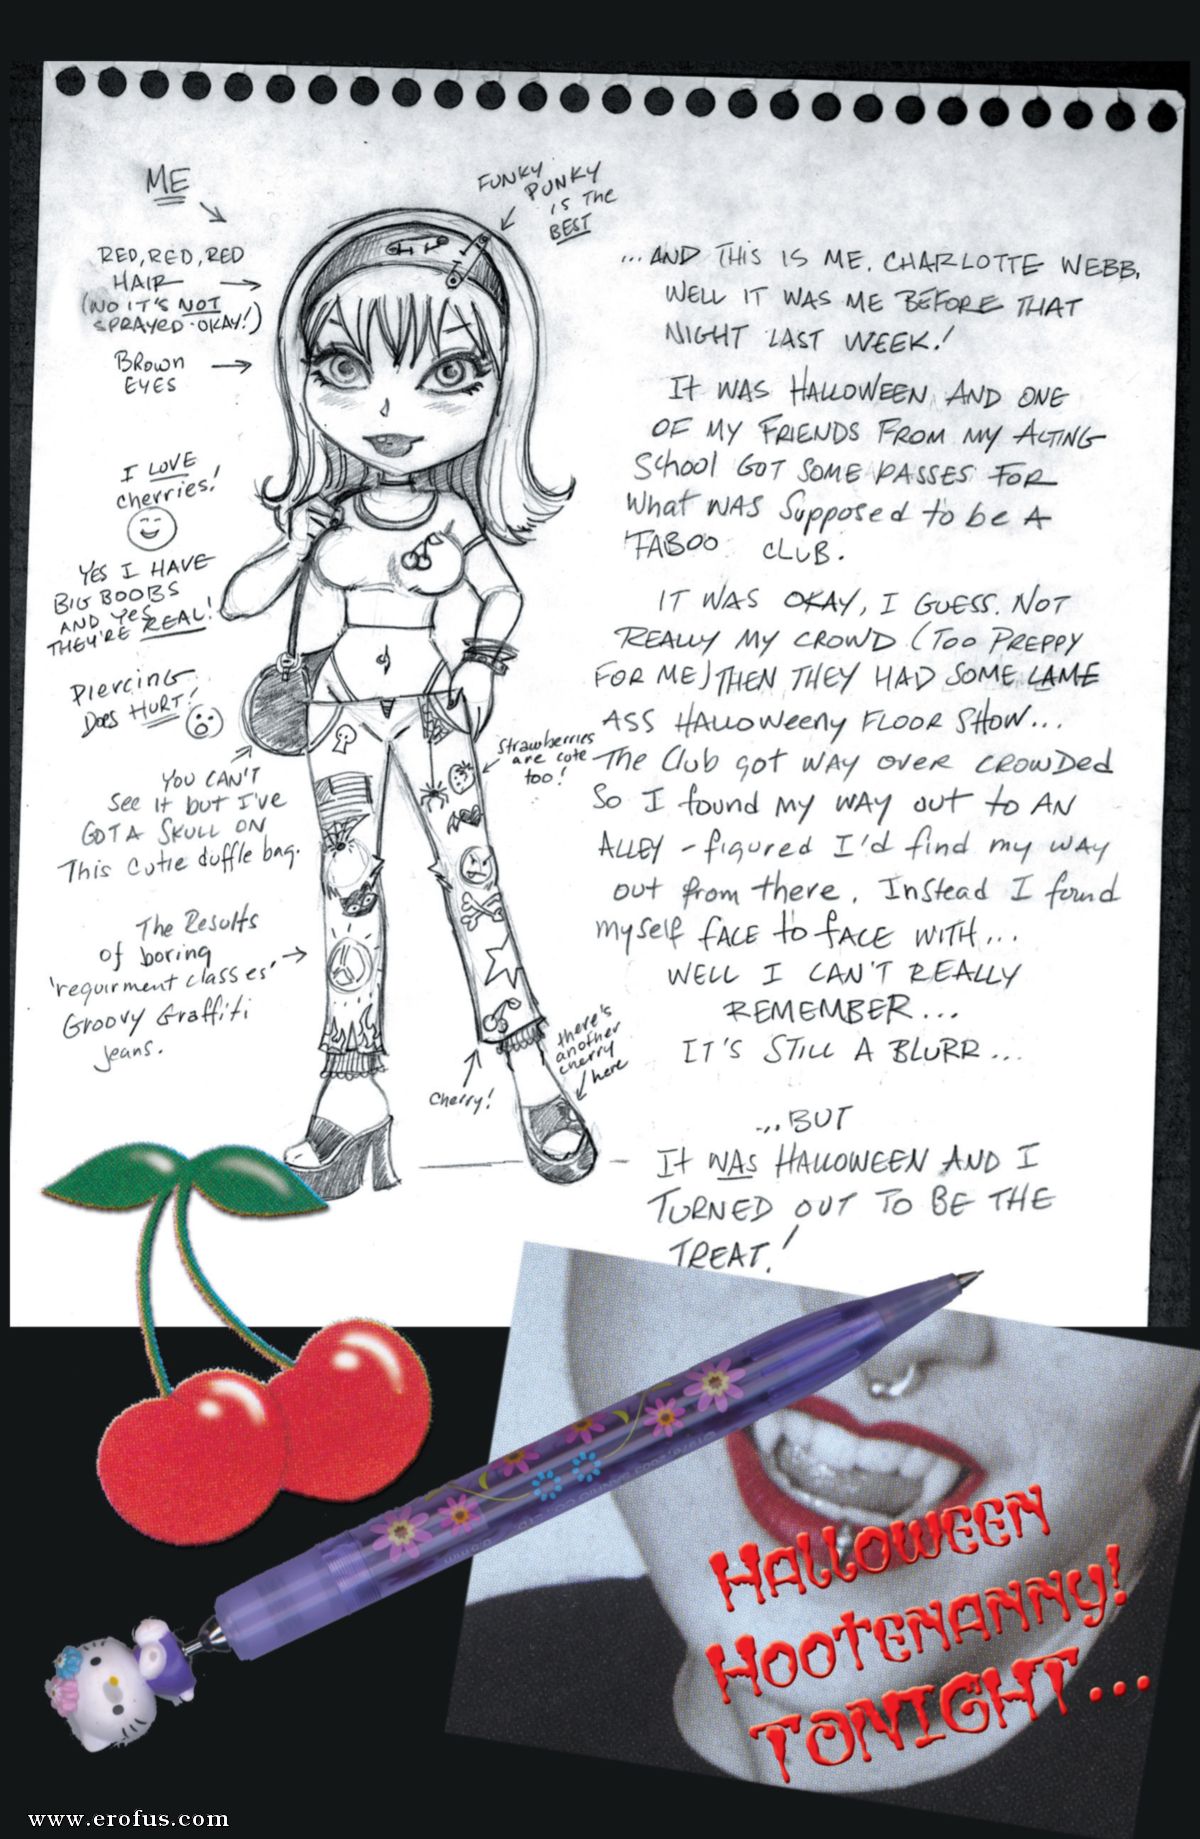 ME
FUNKY
PUNKY
IS THE
BEST
RED, RED, RED
HAIR
(NO IT'S NOT
SPRAYED-OKAY!)
BROWN
EYES
I LOVE
cherries!
YES I HAVE
BIG BOOBS
AND YES
THEY'RE REAL!
PIERCING
DOES HURT!
YOU CAN'T
SEE IT but I'VE
GOT A SKULL ON
This cutie duffle bag.
The Results
of boring
'requirment classes'
Groovy Graffiti
jeans.
Strawberries
are cute
too!
Cherry!
there's
another
cherry
here
...AND THIS IS ME. CHARLOTTE WEBB,
WELL IT WAS ME BEFORE THAT
NIGHT LAST WEEK!
IT WAS HALLOWEEN AND ONE
OF MY FRIENDS FROM MY ACTING
School GOT SOME PASSES FOR
What WAS Supposed to be A
TABOO CLUB.
IT WAS OKAY, I GUESS. NOT
REALLY MY CROWD (TOO PREPPY
FOR ME) THEN THEY HAD SOME LAME
ASS HALLOWEENY FLOOR SHOW...
The Club got WAY over CROWDED
So I found my WAY out to AN
ALLEY - figured I'd find my WAY
out from there. Instead I found
myself FACE to FACE WITH...
WELL I CAN'T REALLY
REMEMBER...
IT'S STILL A BLURR...
...BUT
It WAS HALLOWEEN AND I
TURNED OUT TO BE THE
TREAT!
HALLOWEEN
HOOTENANNY!
TONIGHT...
www.erofus.com